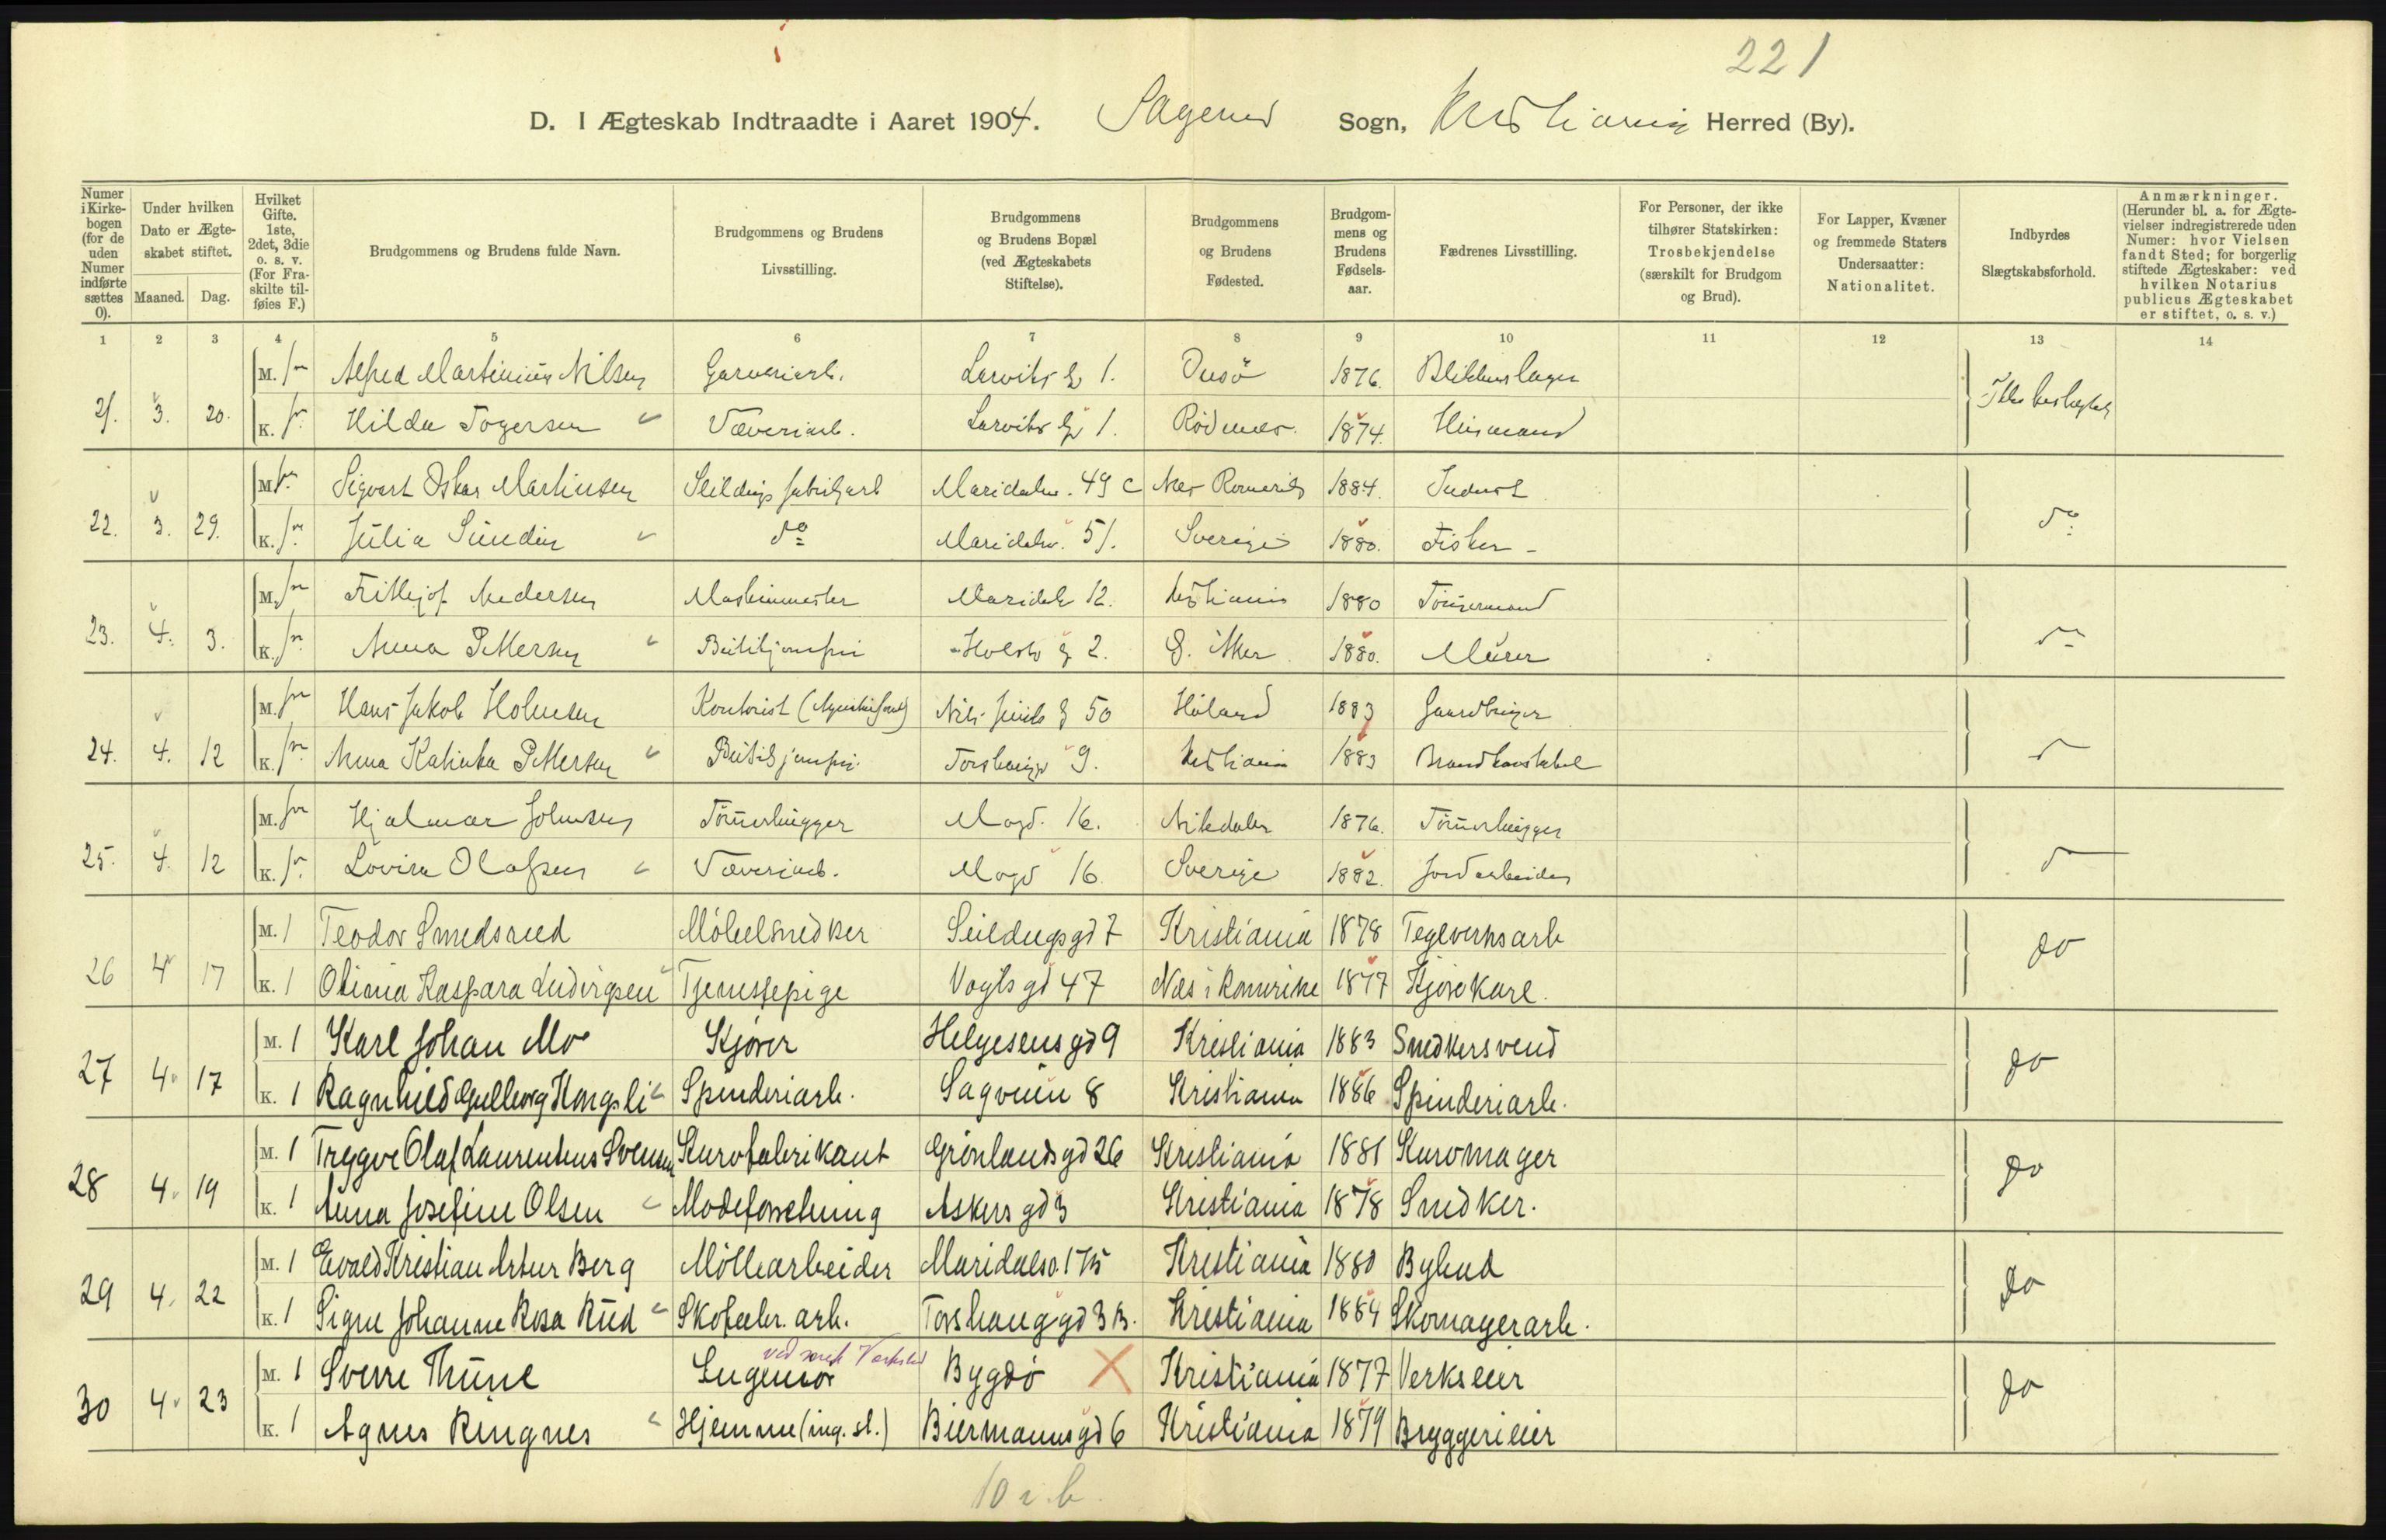 221
D. I Ægteskab Indtraadte i Aaret 1904. Sagenes Sogn, Kristiania Herred (By).
Numer i Kirkebogen (for de uden Numer indførte sættes 0).
Under hvilken Dato er Ægteskabet stiftet.
Maaned. Dag.
Hvilket Gifte. 1ste, 2det, 3die o. s. v. (For Fraskilte tilføies F.)
Brudgommens og Brudens fulde Navn.
Brudgommens og Brudens Livsstilling.
Brudgommens og Brudens Bopæl (ved Ægteskabets Stiftelse).
Brudgommens og Brudens Fødested.
Brudgommens og Brudens Fødselsaar.
Fædrenes Livsstilling.
For Personer, der ikke tilhører Statskirken: Trosbekjendelse (særskilt for Brudgom og Brud).
For Lapper, Kvæner og fremmede Staters Undersaatter: Nationalitet.
Indbyrdes Slægtskabsforhold.
Anmærkninger. (Herunder bl. a. for Ægtevielser indregistrerede uden Numer: hvor Vielsen fandt Sted; for borgerlig stiftede Ægteskaber: ved hvilken Notarius publicus Ægteskabet er stiftet, o. s. v.)
1 2 3 4 5 6 7 8 9 10 11 12 13 14
M. Alfred Martinius Nilsen Garveriarb. Larviks g 1. 1876. Blikkenslager
21. 3. 20. K. Hilda Togersen Væveriarb. Larviks g 1. Rödenæs 1874. Husmand
M. Sigvart Oskar Martinsen Seildugsfabrikarb Maridalsv. 49 c Nes Romerike 1884. Inderst
22. 3. 29. K. Julia Sundin do Maridalsv. 51. Sverige 1880. Fisker
M. Frithjof Andersen Maskinmester Maridalsv 12. Kristiania 1880 Tömmermand
23. 4. 3. K. Anna Pettersen Butikjomfru Holsts g 2. Ø. Aker 1880. Murer do
M. Hans Jakob Holmsen Kontorist Nils Juels g 50 Höland 1883 Gaardbruger
24. 4. 12 K. Anna Katinka Pettersen Butikjomfru Torshauggd 9. Kristiania 1883 Brandkonstabel
M. Hjalmar Johnsen Tömmerhugger Mogt. 16. Nitedalen 1876. Tömmerhugger
25. 4. 12 K. Lovise Olafsen Væveriarb. Mogt 16. Sverige 1882. Jordarbeider
M. 1 Teodor Smedsrud Möbelsnedker Seildugsgd 7 Kristiania 1878 Teglverksarb
26 4 17 K. 1 Oliana Kaspara Ludvigsen Tjenestepige Vogtsgd 47 Næs i Romerike 1877 Kjørekarl. do
M. 1 Karl Johan Mo Kjører Helgesensgd 9 Kristiania 1883 Snedkersvend
27 4. 17 K. 1 Ragnhild Gulborg Kongsli Spinderiarb. Sagveien 8 Kristiania 1886 Spinderiarb. do
M. 1 Trygve Olaf Laurentius Svensen Kurvfabrikant Grønlandsgd 26 Kristiania 1881 Kurvmager
28 4. 19 K. 1 Anna Josefine Olsen Modeforretning Askersgd 3 Kristiania 1878 Snedker. do
M. 1 Evald Kristian Artur Berg Möllearbeider Maridalsv. 175 Kristiania 1880 Bybud
29 4. 22 K. 1 Signe Johanne Rosa Rud Skofabr. arb. Torshauggd 3 B. Kristiania 1884 Skomagerarb. do
ved Verksted
M. 1 Sverre Thune Ingeniør Bygdö X Kristiania 1877 Verkseier
30 4. 23 K. 1 Agnes Ringnes Hjemme (ing. st.) Biermannsgd 6 Kristiania 1879 Bryggerieier do